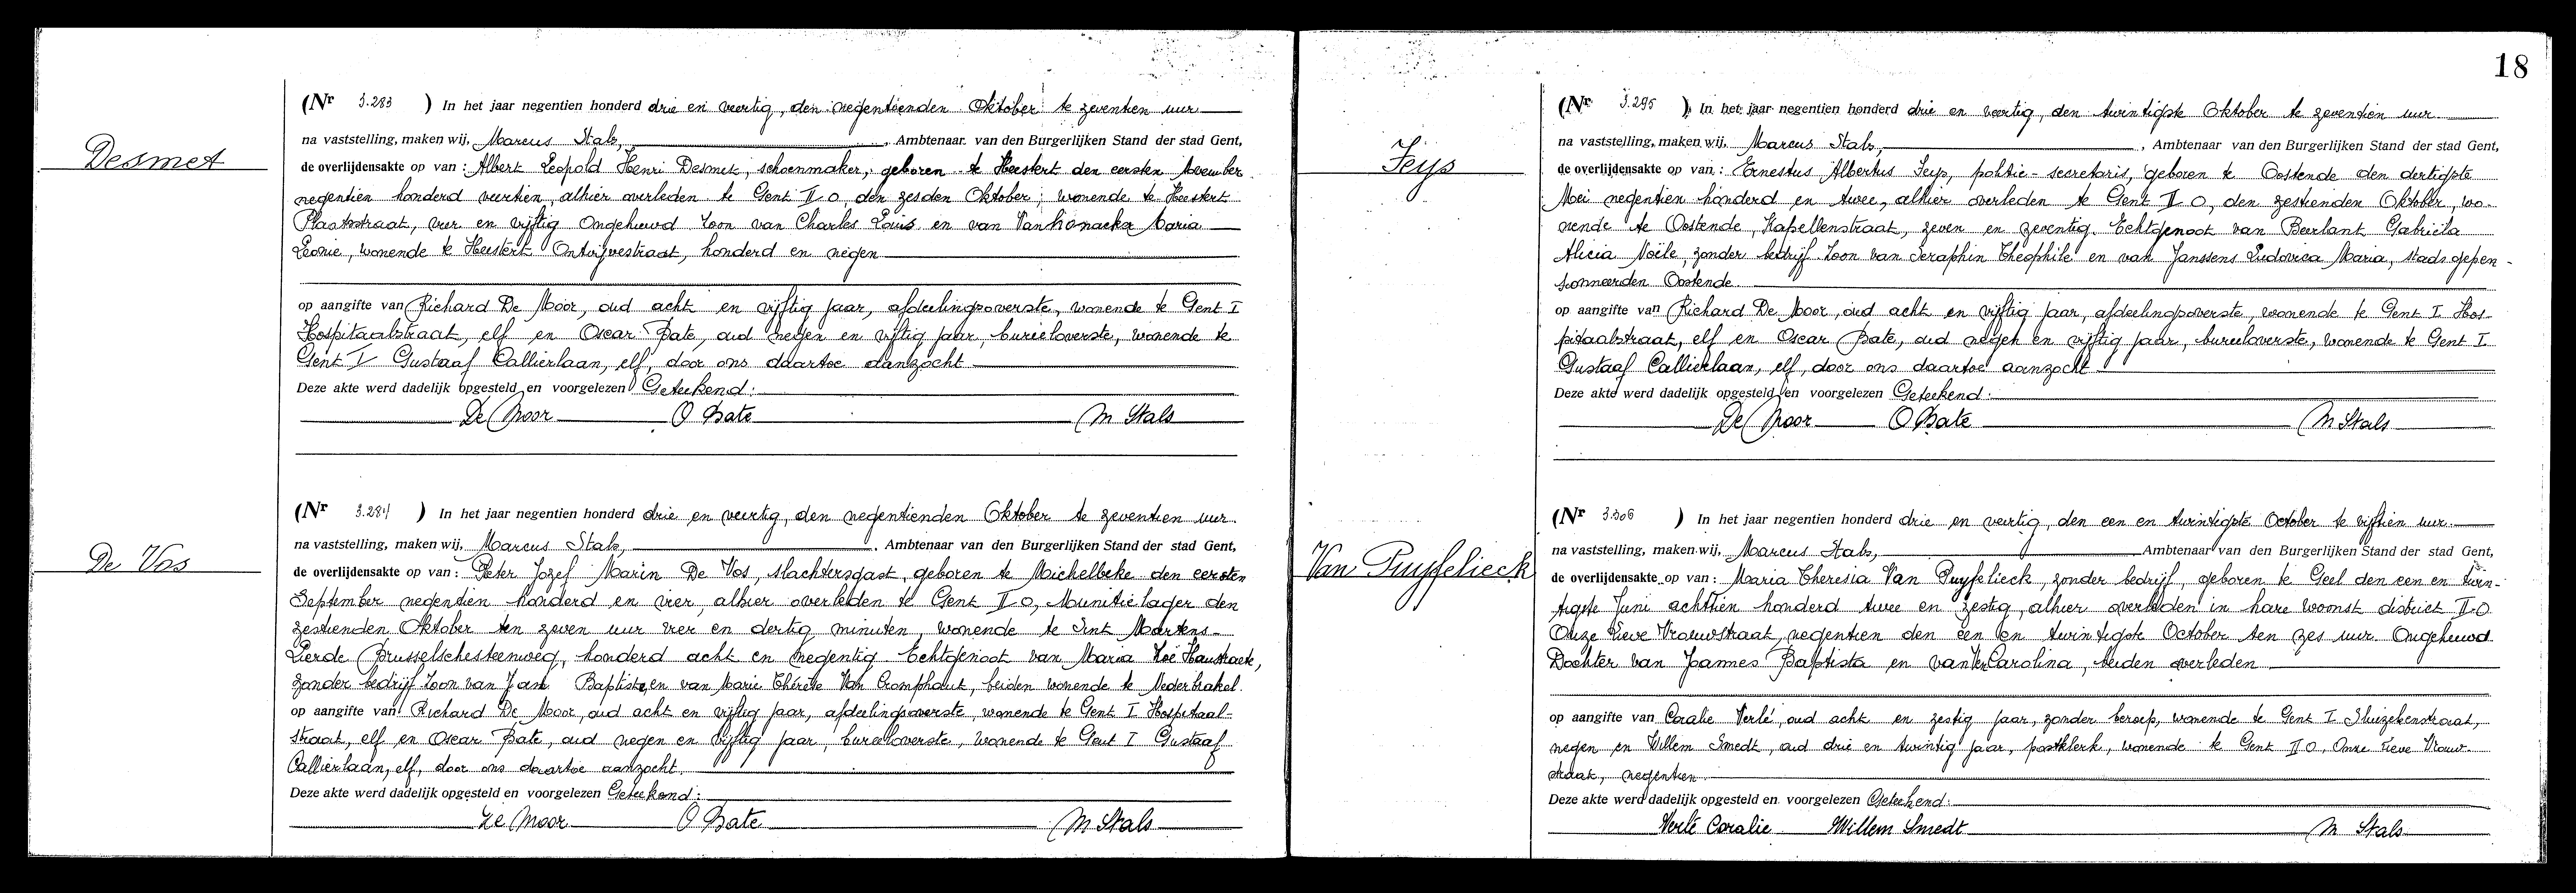 Desmet
(Nr 3.283 ) In het jaar negentien honderd drie en veertig, den negentienden Oktober te zeventien uur
na vaststelling, maken wij, Marcus Stals, , Ambtenaar van den Burgerlijken Stand der stad Gent,
de overlijdensakte op van : Albert Leopold Henri Desmet, schoenmaker, geboren te Heestert den eersten November
negentien honderd veertien, alhier overleden te Gent II O, den zesden Oktober; wonende te Heestert
Plaatsstraat, vier en vijftig Ongehuwd Zoon van Charles Louis en van Vanhonacker Maria
Leonie, wonende te Heestert Ontrijvestraat, honderd en negen
op aangifte van Richard De Moor, oud acht en vijftig jaar, afdeelingsoverste, wonende te Gent I
Hospitaalstraat, elf en Oscar Bate, oud negen en vijftig jaar bureeloverste, wonende te
Gent I Gustaaf Callierlaan, elf, door ons daartoe aanzocht
Deze akte werd dadelijk opgesteld en voorgelezen Geteekend:
De Moor O Bate M Stals
De Vos
(Nr 3.284 ) In het jaar negentien honderd drie en veertig, den negentienden Oktober te zeventien uur.
na vaststelling, maken wij, Marcus Stals, , Ambtenaar van den Burgerlijken Stand der stad Gent,
de overlijdensakte op van : Peter Jozef Marin De Vos, slachtersgast, geboren te Michelbeke den eersten
September negentien honderd en vier, alhier overleden te Gent II O, Munitielager den
zestienden Oktober ten zeven uur vier en dertig minuten, wonende te Sint Martens-
Lierde Brusselschesteenweg, honderd acht en negentig Echtgenoot van Maria Zoë Haustraete,
zonder bedrijf Zoon van Jan Baptiste, en van Marie Thérèse Van Cromphaut, beiden wonende te Nederbrakel.
op aangifte van Richard De Moor, oud acht en vijftig jaar, afdeelingsoverste, wonende te Gent I Hospitaal-
straat, elf en Oscar Bate, oud negen en vijftig jaar, bureeloverste, wonende te Gent I Gustaaf
Callierlaan, elf, door ons daartoe aanzocht.
Deze akte werd dadelijk opgesteld en voorgelezen Geteekend:
De Moor O Bate M Stals
18
Feys
(Nr 3.295 ) In het jaar negentien honderd drie en veertig, den twintigste Oktober te zeventien uur.
na vaststelling, maken wij, Marcus Stals, , Ambtenaar van den Burgerlijken Stand der stad Gent,
de overlijdensakte op van : Ernestus Albertus Feys, politie-secretaris, geboren te Oostende den dertigste
Mei negentien honderd en twee, alhier overleden te Gent II O, den zestienden Oktober, wo-
nende te Oostende, Kapellenstraat, zeven en zeventig. Echtgenoot van Beerlant Gabriëla
Alicia Noële, zonder bedrijf. Zoon van Seraphin Theophile en van Janssens Ludovica Maria, stadsgepen-
sionneerden Oostende.
op aangifte van Richard De Moor, oud acht en vijftig jaar, afdeelingsoverste, wonende te Gent I Hos-
pitaalstraat, elf en Oscar Bate, oud negen en vijftig jaar, bureeloverste, wonende te Gent I
Gustaaf Callierlaan, elf, door ons daartoe aanzocht
Deze akte werd dadelijk opgesteld en voorgelezen Geteekend:
De Moor O Bate M Stals
Van Puyfelieck
(Nr 3.306 ) In het jaar negentien honderd drie en veertig, den een en twintigste October te vijftien uur.
na vaststelling, maken wij, Marcus Stals, Ambtenaar van den Burgerlijken Stand der stad Gent,
de overlijdensakte op van : Maria Theresia Van Puyfelieck, zonder bedrijf, geboren te Geel den een en twin-
tigste Juni achttien honderd twee en zestig, alhier overleden in hare woonst district II.O
Onze Lieve Vrouwstraat, negentien den een en twintigste October ten zes uur. Ongehuwd
Dochter van Joannes Baptista en van Carolina, beiden overleden
op aangifte van Coralie Verlé, oud acht en zestig jaar, zonder beroep, wonende te Gent I Sluizekenstraat,
negen en Willem Smedt, oud drie en twintig jaar, postklerk, wonende te Gent II O, Onze Lieve Vrouw-
straat, negentien.
Deze akte werd dadelijk opgesteld en voorgelezen Geteekend:
Verlé Coralie Willem Smedt M Stals